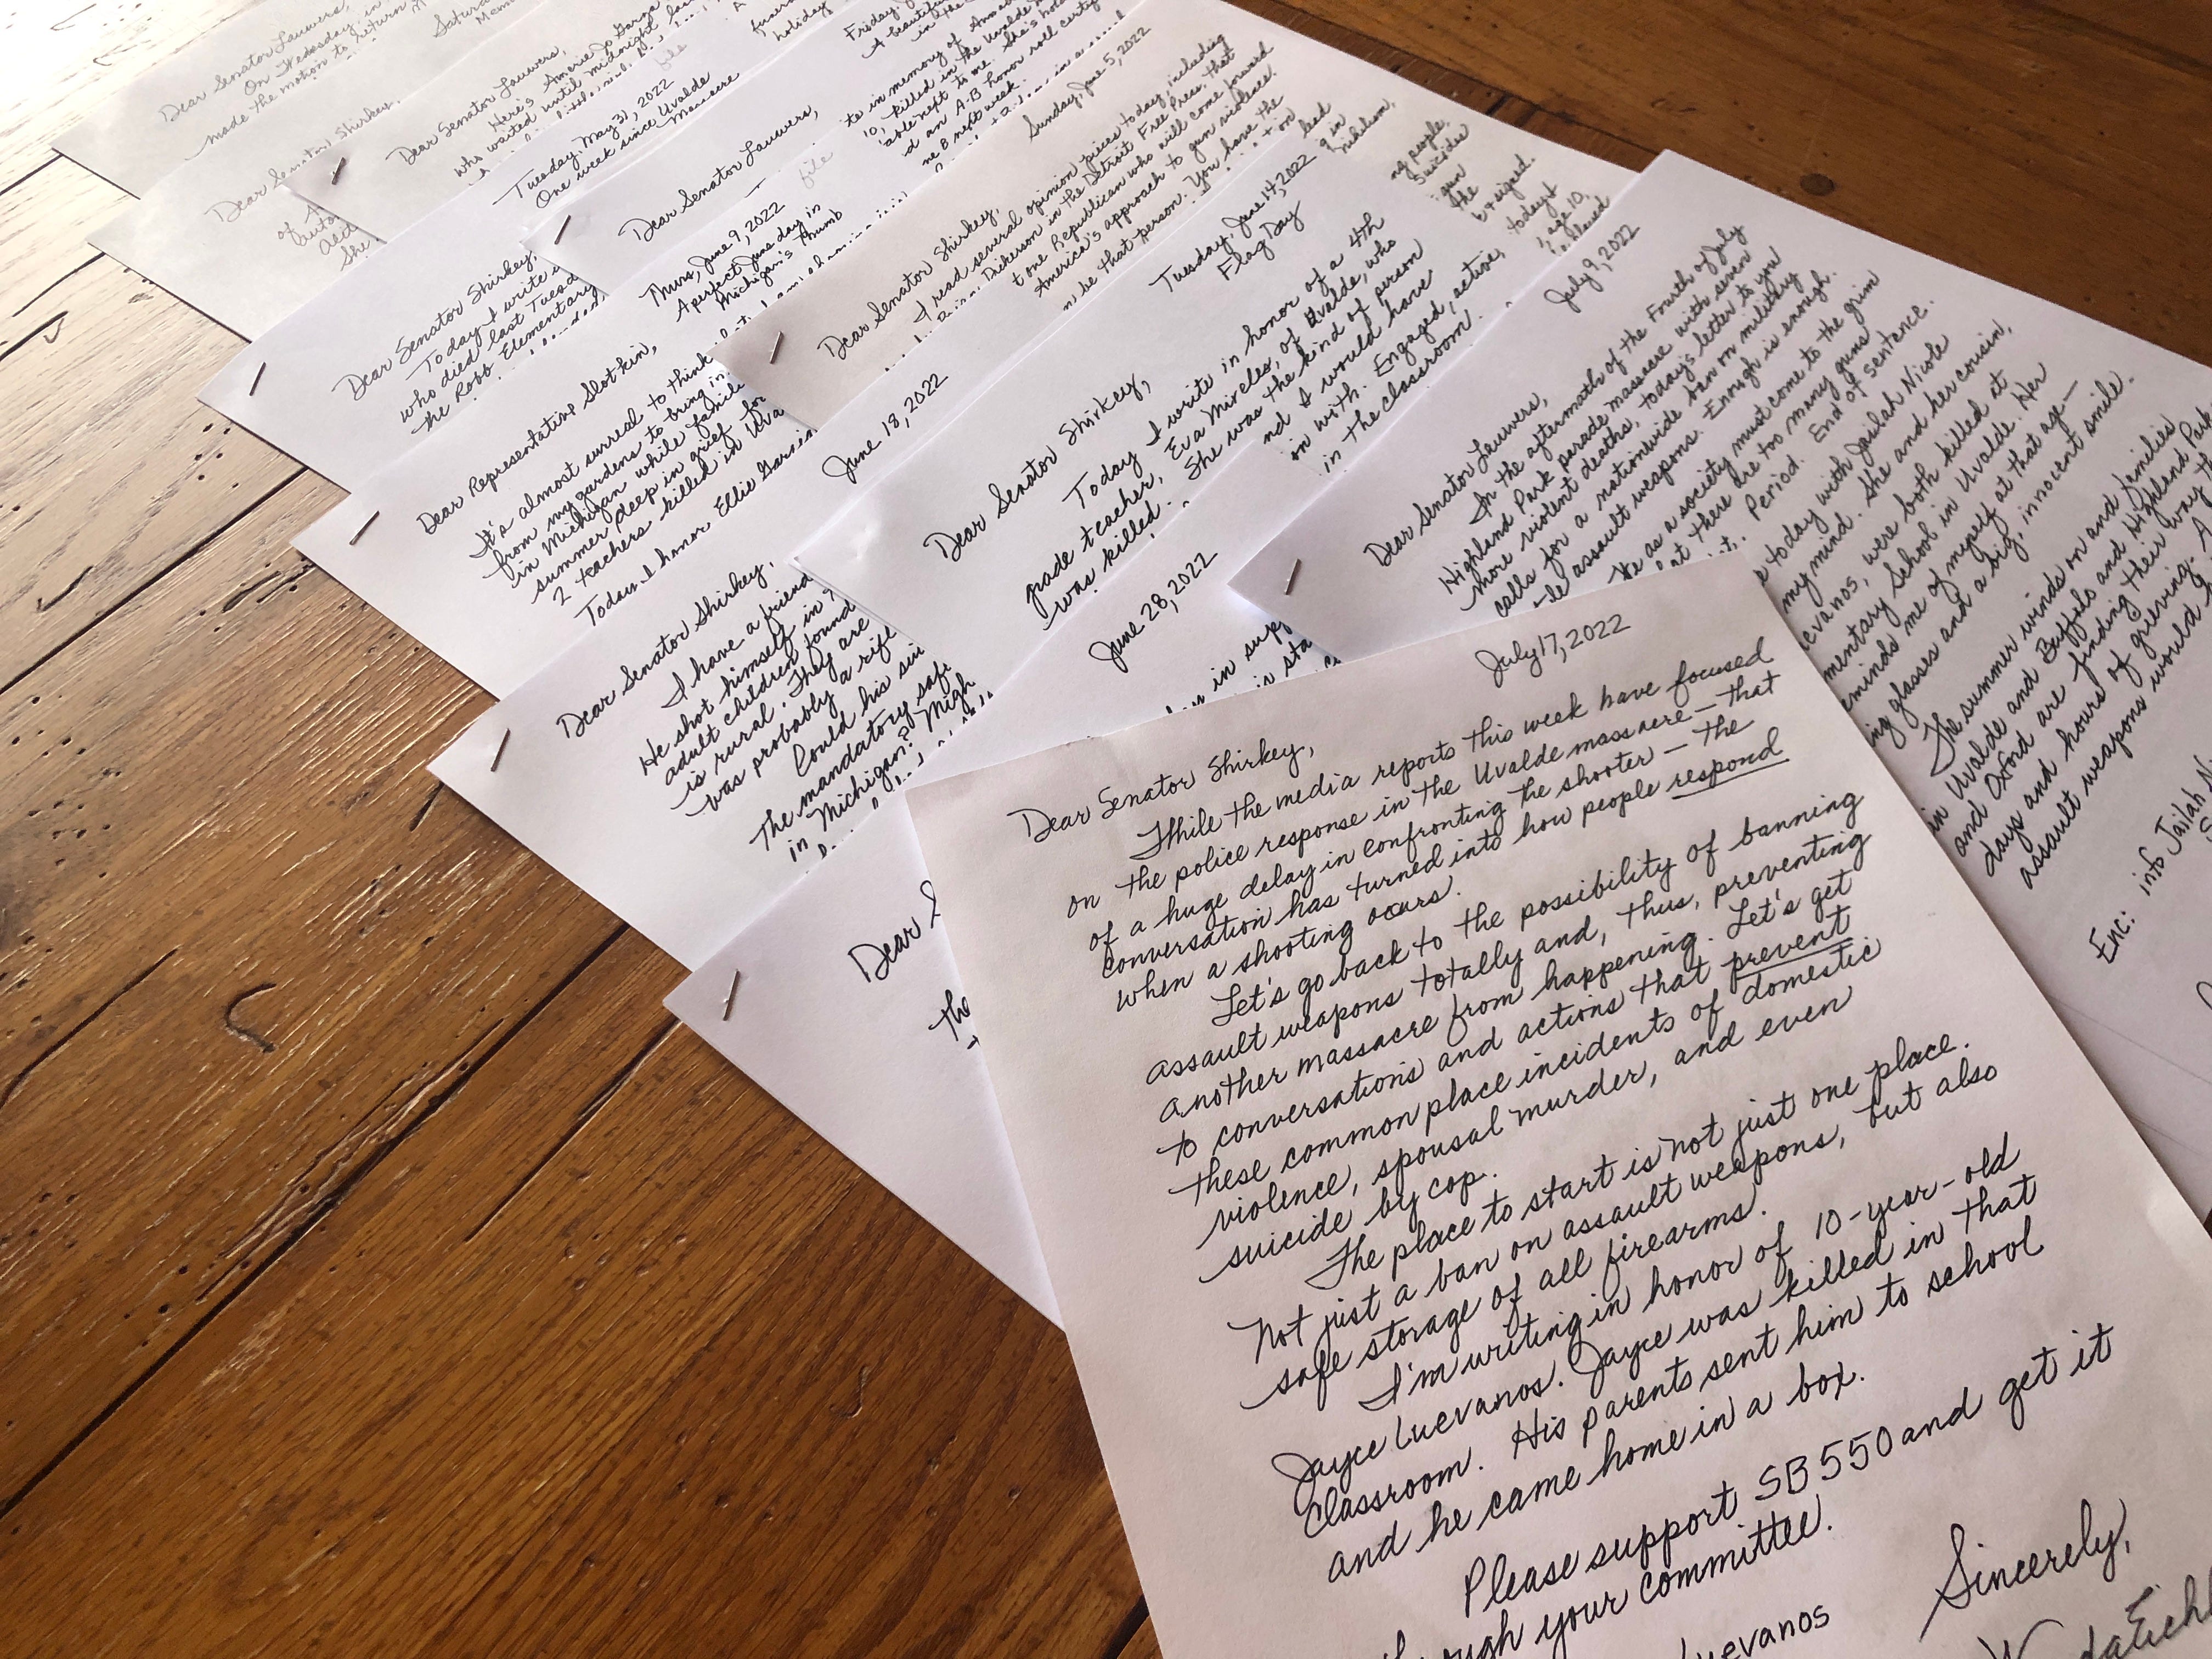 Dear Senator Lauwers,
On Wednesday, in
made the motion to return
Saturda
Mem
Dear Senator Shirkey,
of
She
Dear Senator Lauwers,
Here's Amerie Jo Garza
who waited until midnight
file
holiday
Tuesday, May 31, 2022
One week since Uvalde
Massacre
Dear Senator Shirkey,
Today I write
who died last Tuesd
the Robb Elementary
Friday,
A beautiful
in the
Dear Senator Lauwers,
file
te in memory of
10, killed in the Uvalde
able next to me. She's hold
d an A-B honor roll certif
ne 8 next week.
Thurs, June 9, 2022
A perfect June day in
Michigan's Thumb
Dear Representative Slotkin,
It's almost surreal to think
from my gardens to bring in
in Michigan while familie
summer deep in grief for
2 teachers killed in Uva
Today I honor Ellie Garcia
Sunday, June 5, 2022
Dear Senator Shirkey,
I read several opinion pieces today, including
Dickerson in the Detroit Free Press, that
t one Republican who will come forward
America's approach to gun violence.
be that person. You have the
lead
in
nihilism,
June 18, 2022
Dear Senator Shirkey,
I have a friend
He shot himself in
adult children found
is rural. They are
was probably a rifle
Could his sui
The mandatory safe
in Michigan? Migh
Tuesday, June 14, 2022
Flag Day
Dear Senator Shirkey,
Today I write in honor of a 4th
grade teacher, Eva Mireles, of Uvalde, who
was killed. She was the kind of person
nd I would have
on with. Engaged, active,
in the classroom.
ng people,
Suicides
gun
the
signed.
today
age 10,
June 28, 2022
Dear S
the
in supp
is sta
July 9, 2022
Dear Senator Lauwers,
In the aftermath of the Fourth of July
Highland Park parade massacre with seven
more violent deaths, today's letter to you
calls for a nationwide ban on military
style assault weapons. Enough is enough.
We as a society must come to the grim
that there are too many guns
Period. End of sentence.
today with Jailah Nicole
my mind. She and her cousin,
evanos, were both killed at
mentary School in Uvalde. Her
eminds me of myself at that age—
ing glasses and a big, innocent smile.
The summer winds on and families
in Uvalde and Buffalo and Highland Park
and Oxford are finding their way th
days and hours of grieving. A
assault weapons would
Enc: info Jailah Ni
July 17, 2022
Dear Senator Shirkey,
While the media reports this week have focused
on the police response in the Uvalde massacre – that
of a huge delay in confronting the shooter – the
conversation has turned into how people respond
when a shooting occurs.
Let's go back to the possibility of banning
assault weapons totally and, thus, preventing
another massacre from happening. Let's get
to conversations and actions that prevent
these common place incidents of domestic
violence, spousal murder, and even
suicide by cop.
The place to start is not just one place.
Not just a ban on assault weapons, but also
safe storage of all firearms.
I'm writing in honor of 10-year-old
Jayce Luevanos. Jayce was killed in that
classroom. His parents sent him to school
and he came home in a box.
Please support SB 550 and get it
through your committee.
Sincerely,
Luevanos